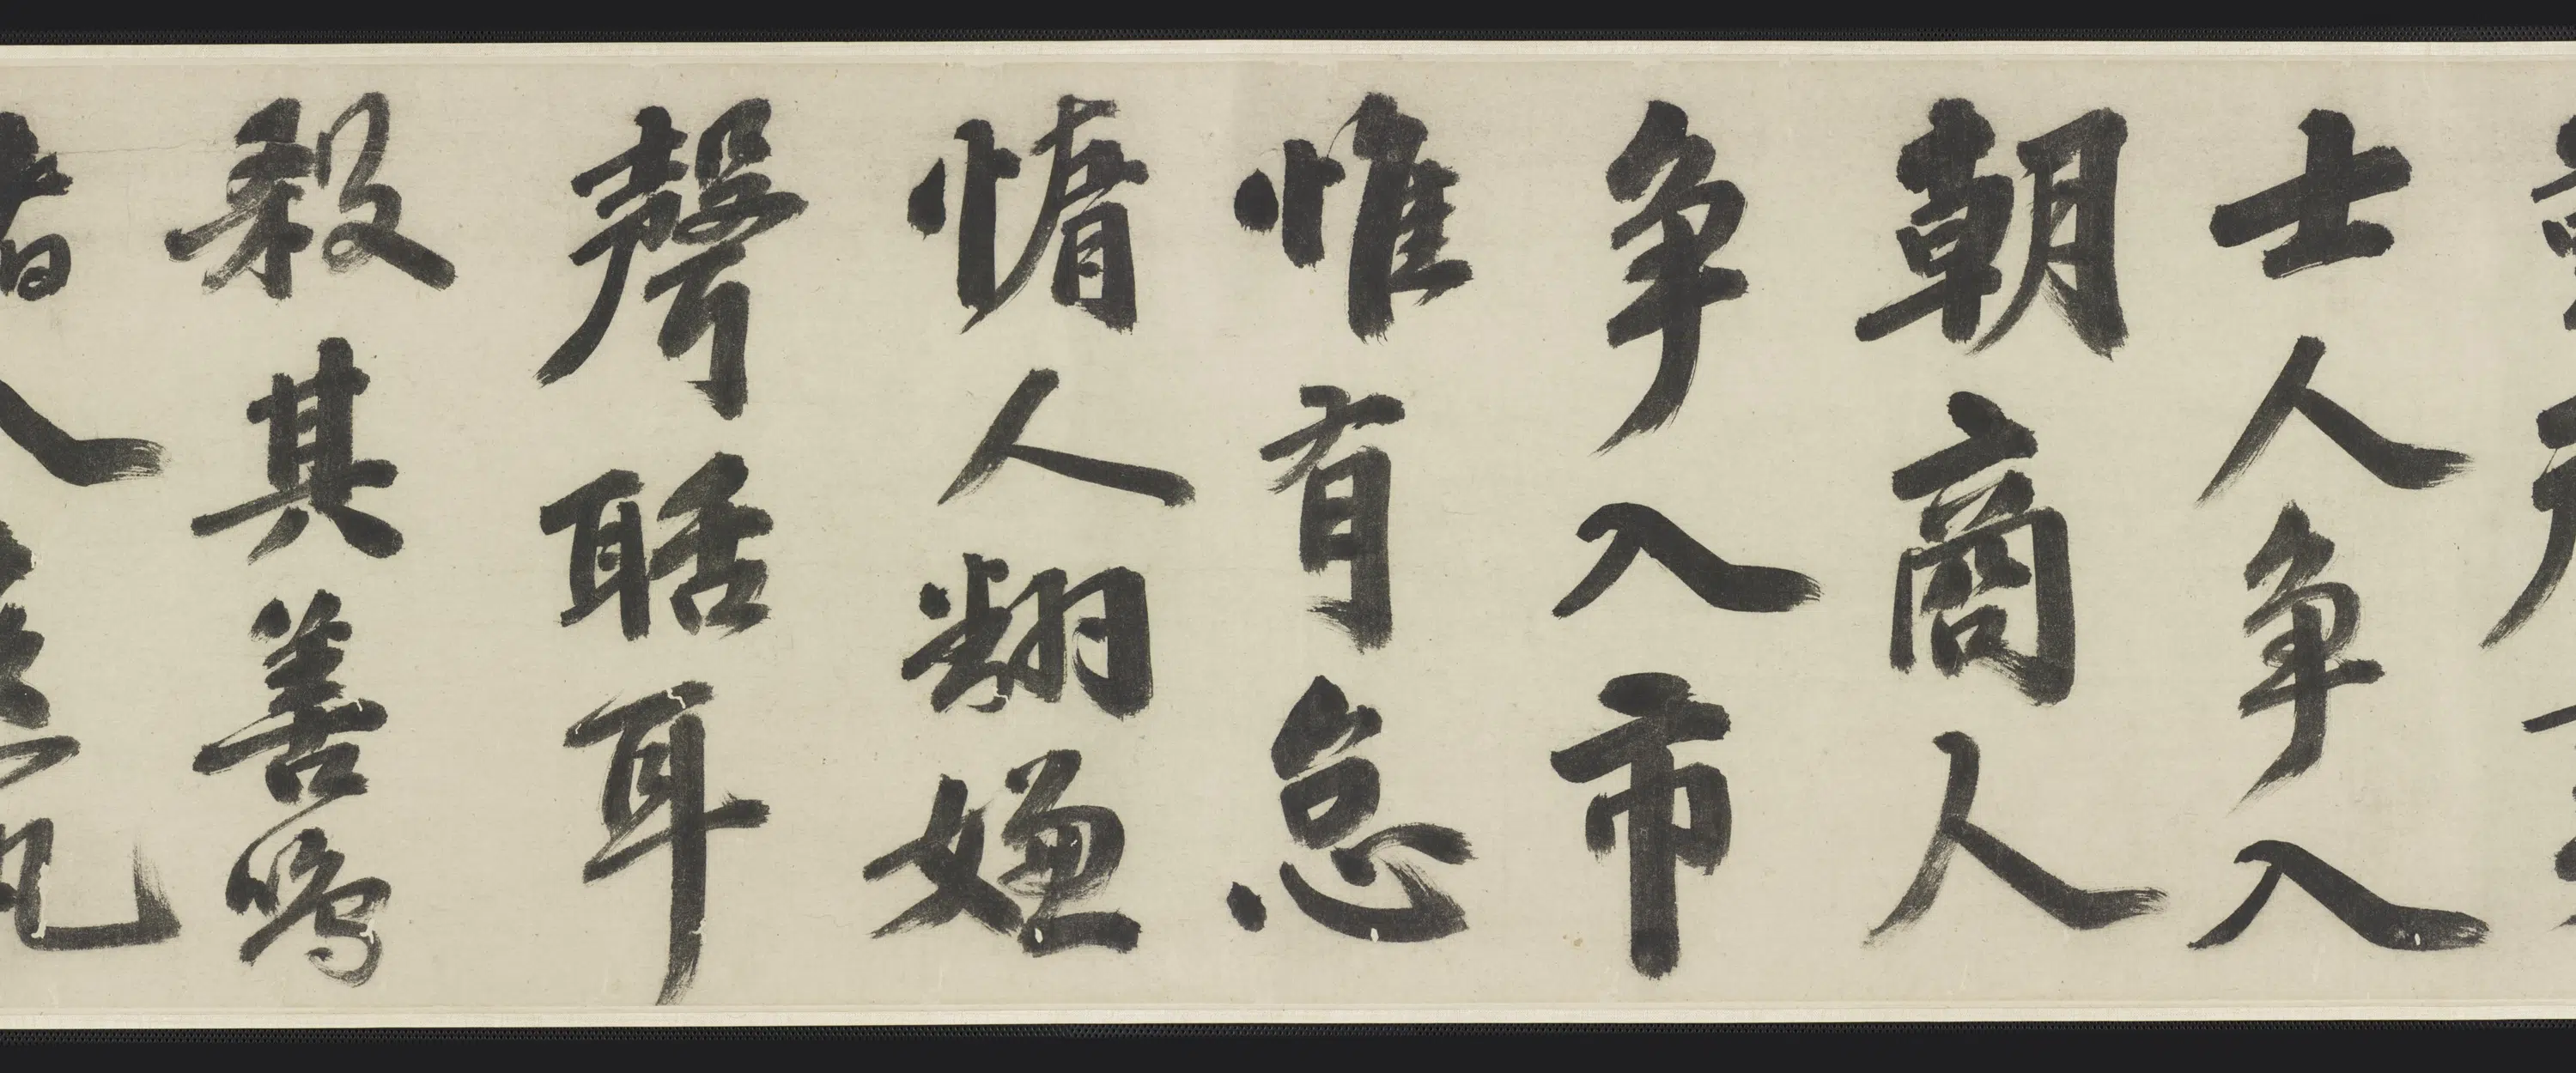 士人争入
朝商人
争入市
惟有怠
惰人翻嫌
聲聒耳
殺其善鳴
者